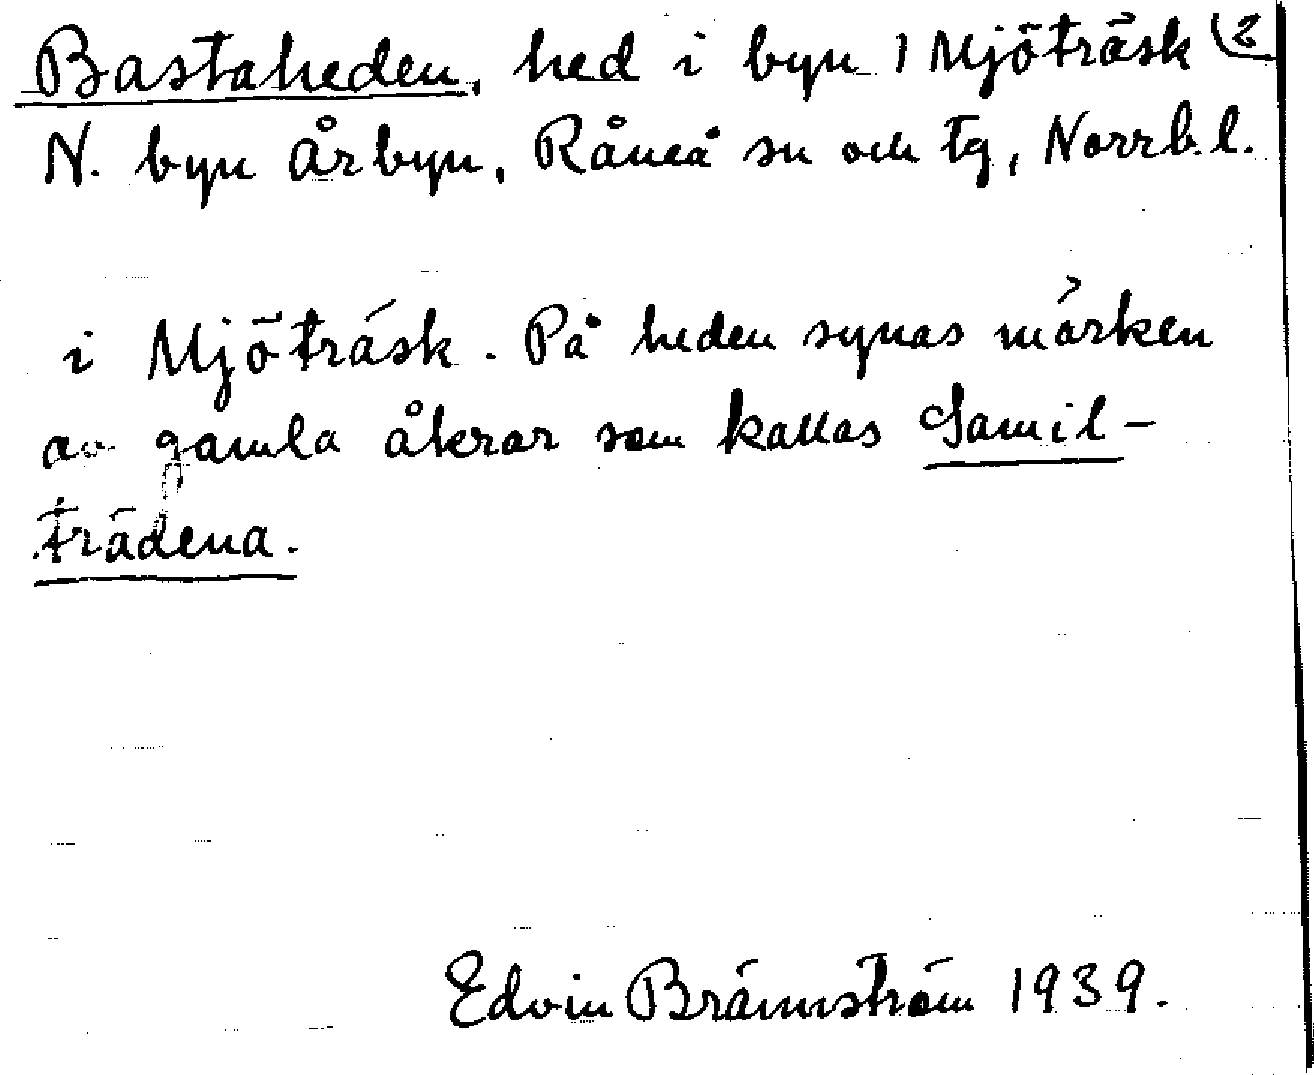 Bastaheden, hed i byn 1 Mjöträsk 2
N. byn Årbyn, Råneå sn och tg, Norrb.l.
i Mjöträsk. På heden synas märken
av gamla åkrar som kallas Samil-
trädena.
Edvin Brännström 1939.